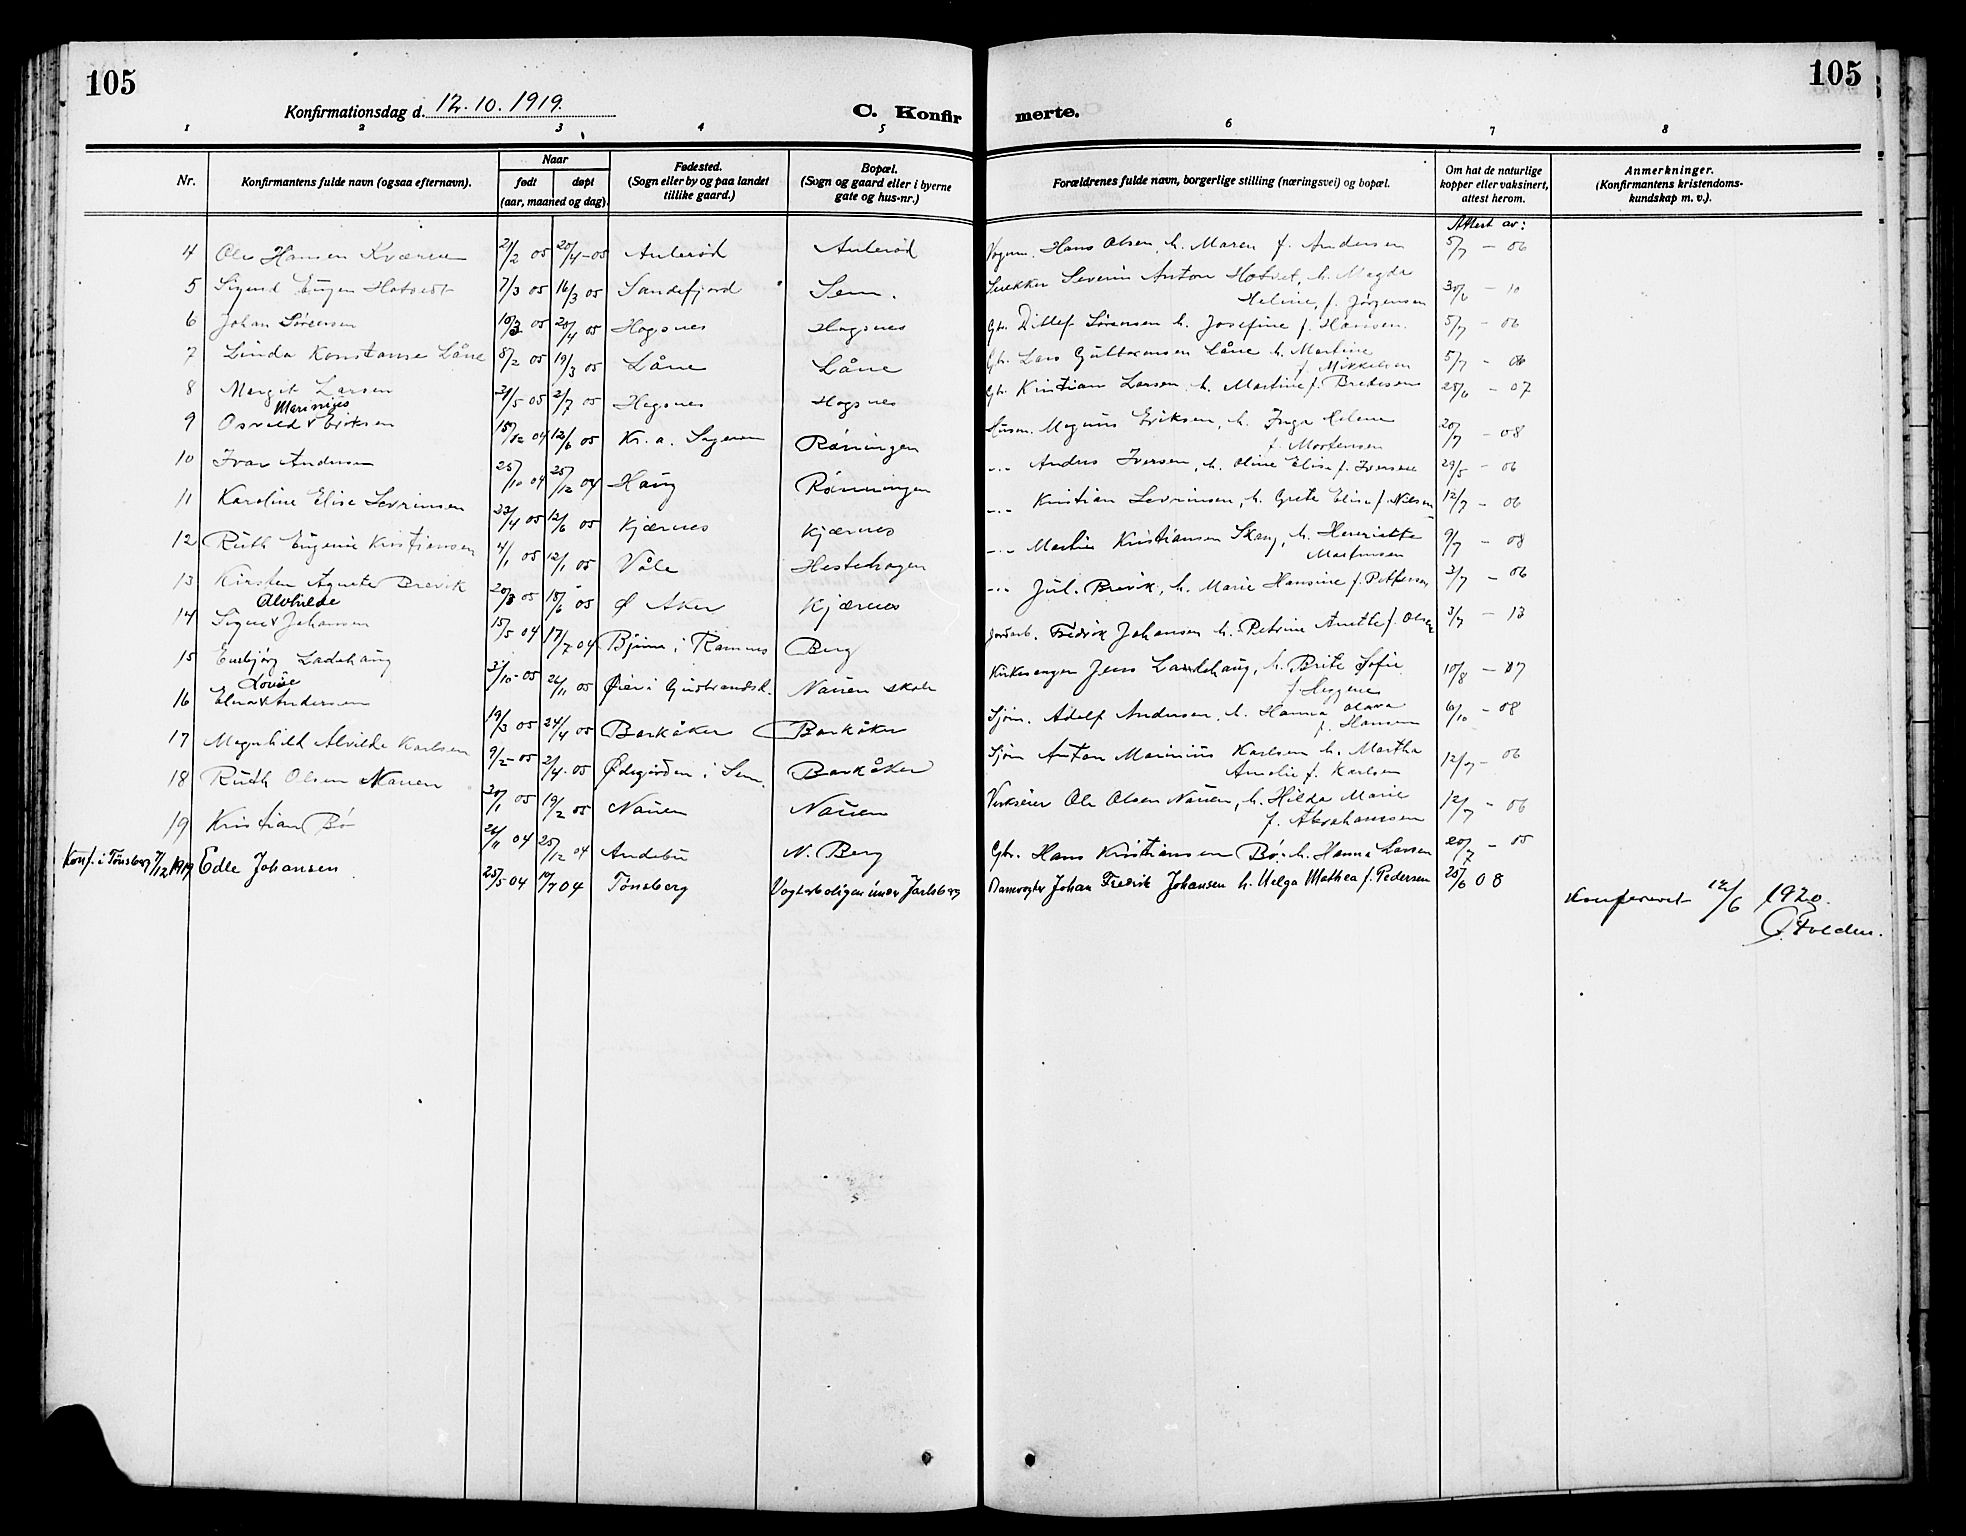 105
105
Konfirmationsdag d. 12.10.1919.
C. Konfir merte.
1 2 3 4 5 6 7 8
Nr. Konfirmantens fulde navn (ogsaa efternavn). Naar født døpt (aar, maaned og dag). Fødested. (Sogn eller by og paa landet tillike gaard.) Bopæl. (Sogn og gaard eller i byerne gate og hus-nr.) Forældrenes fulde navn, borgerlige stilling (næringsvei) og bopæl. Om hat de naturlige kopper eller vaksinert, attest herom. Anmerkninger. (Konfirmantens kristendoms-kundskap m. v.).
Attest av:
4 Ole Hansen Kværne 21/2 05 20/4-05 Aulerød Aulerød Hans Olsen h. Maren f. Andersen 5/7 - 06
5 Sigurd Eugen Hotvedt 7/3 05 16/3 05 Sandefjord Sem. Snekker Severin Anton Hotvet, h. Magda 30/6 - 10
Heline, f. Jørgensen
6 Johan Sørensen 10/3 05 20/4 05 Hogsnes Hogsnes Gbr. Ditlef Sørensen h. Josefine f. Hanssen. 5/7 - 06
7 Linda Konstanse Låne 8/2 05 19/3 05 Låne Låne Gbr. Lars Låne h. Martine 5/7 - 06
f. Mikkelsen
8 Margit Larsen 31/5 05 2/7 05 Hogsnes Hogsnes Gbr. Kristian Larsen h. Martine f. Bredesen 25/6 - 07
Marinius
9 Osvald v Eriksen 15/12 04 12/6 05 Kr. a. Rønningen Husm. Magnus Eriksen, h. Inga Helene 20/7 - 08
f. Mortensen
10 Ivar Andersen 25/10 04 25/12 04 Haug Rønningen -"- Anders Iversen, h. Oline Elise f. Iversen 29/5 - 06
11 Karoline Elise Sevrinsen 23/4 05 12/6 05 Kjærnes Kjærnes -"- Kristian Sevrinsen, h. Grete Elise f. Nilsen 12/7 - 06
12 Ruth Eugenie Kristiansen 4/1 05 12/1 05 Våle Hestehagen -"- Martin Kristiansen Skaug, h. Henriette 9/7 - 08
Martinsen
13 Kirsten Agnete Brevik 20/3 05 18/6 05 Ø Aker Kjærnes -"- Jul. Brevik, h. Marie Hansine f. Pettersen 3/7 - 06
Alvhilde
14 Signe v Johansen 15/5 04 17/7 04 Bjerne i Ramnes Berg Jordarb. Fredrik Johansen h. Petrine Anette f. Olsen 3/7 - 13
15 Ladehaug 3/10-05 26/11 05 Øier i Gudbrandsd. Nauen skole Kirkesanger Jens Ladehaug, h. Brite Sofie 10/8 - 07
f. Heggenes
Lovise
16 Elna v Andersen 19/3 05 24/4 05 Barkåker Barkåker Sjøm. Adolf Andersen, h. Hanna Olava 6/10 - 08
f. Hansen
17 Magnhild Alvilde Karlsen 9/2-05 2/4-05 Ødegården i Sem. Barkåker Sjøm Anton Marinius Karlsen h. Martha 12/7 - 06
Amalie f. Karlsen
18 Ruth Olsen Nauen 30/1 05 19/2 05 Nauen Nauen Verkseier Ole Olsen Nauen, h. Hilda Marie 12/7 - 06
f. Abrahamsen
19 Kristian Bø 26/11 04 25/12 04 Andebu N. Berg Gbr. Hans Kristiansen Bø. h. Hanna Larsen 20/7 - 05
Konf. i Tønsberg 7/12 1919 Edle Johansen 25/5 04 17/7 04 Tønsberg Vogterboligen under Jarlsberg Banevogter Johan Fredrik Johansen h. Helga Mathea f. Pedersen 25/6 08
Konfereret 12/6 1920.